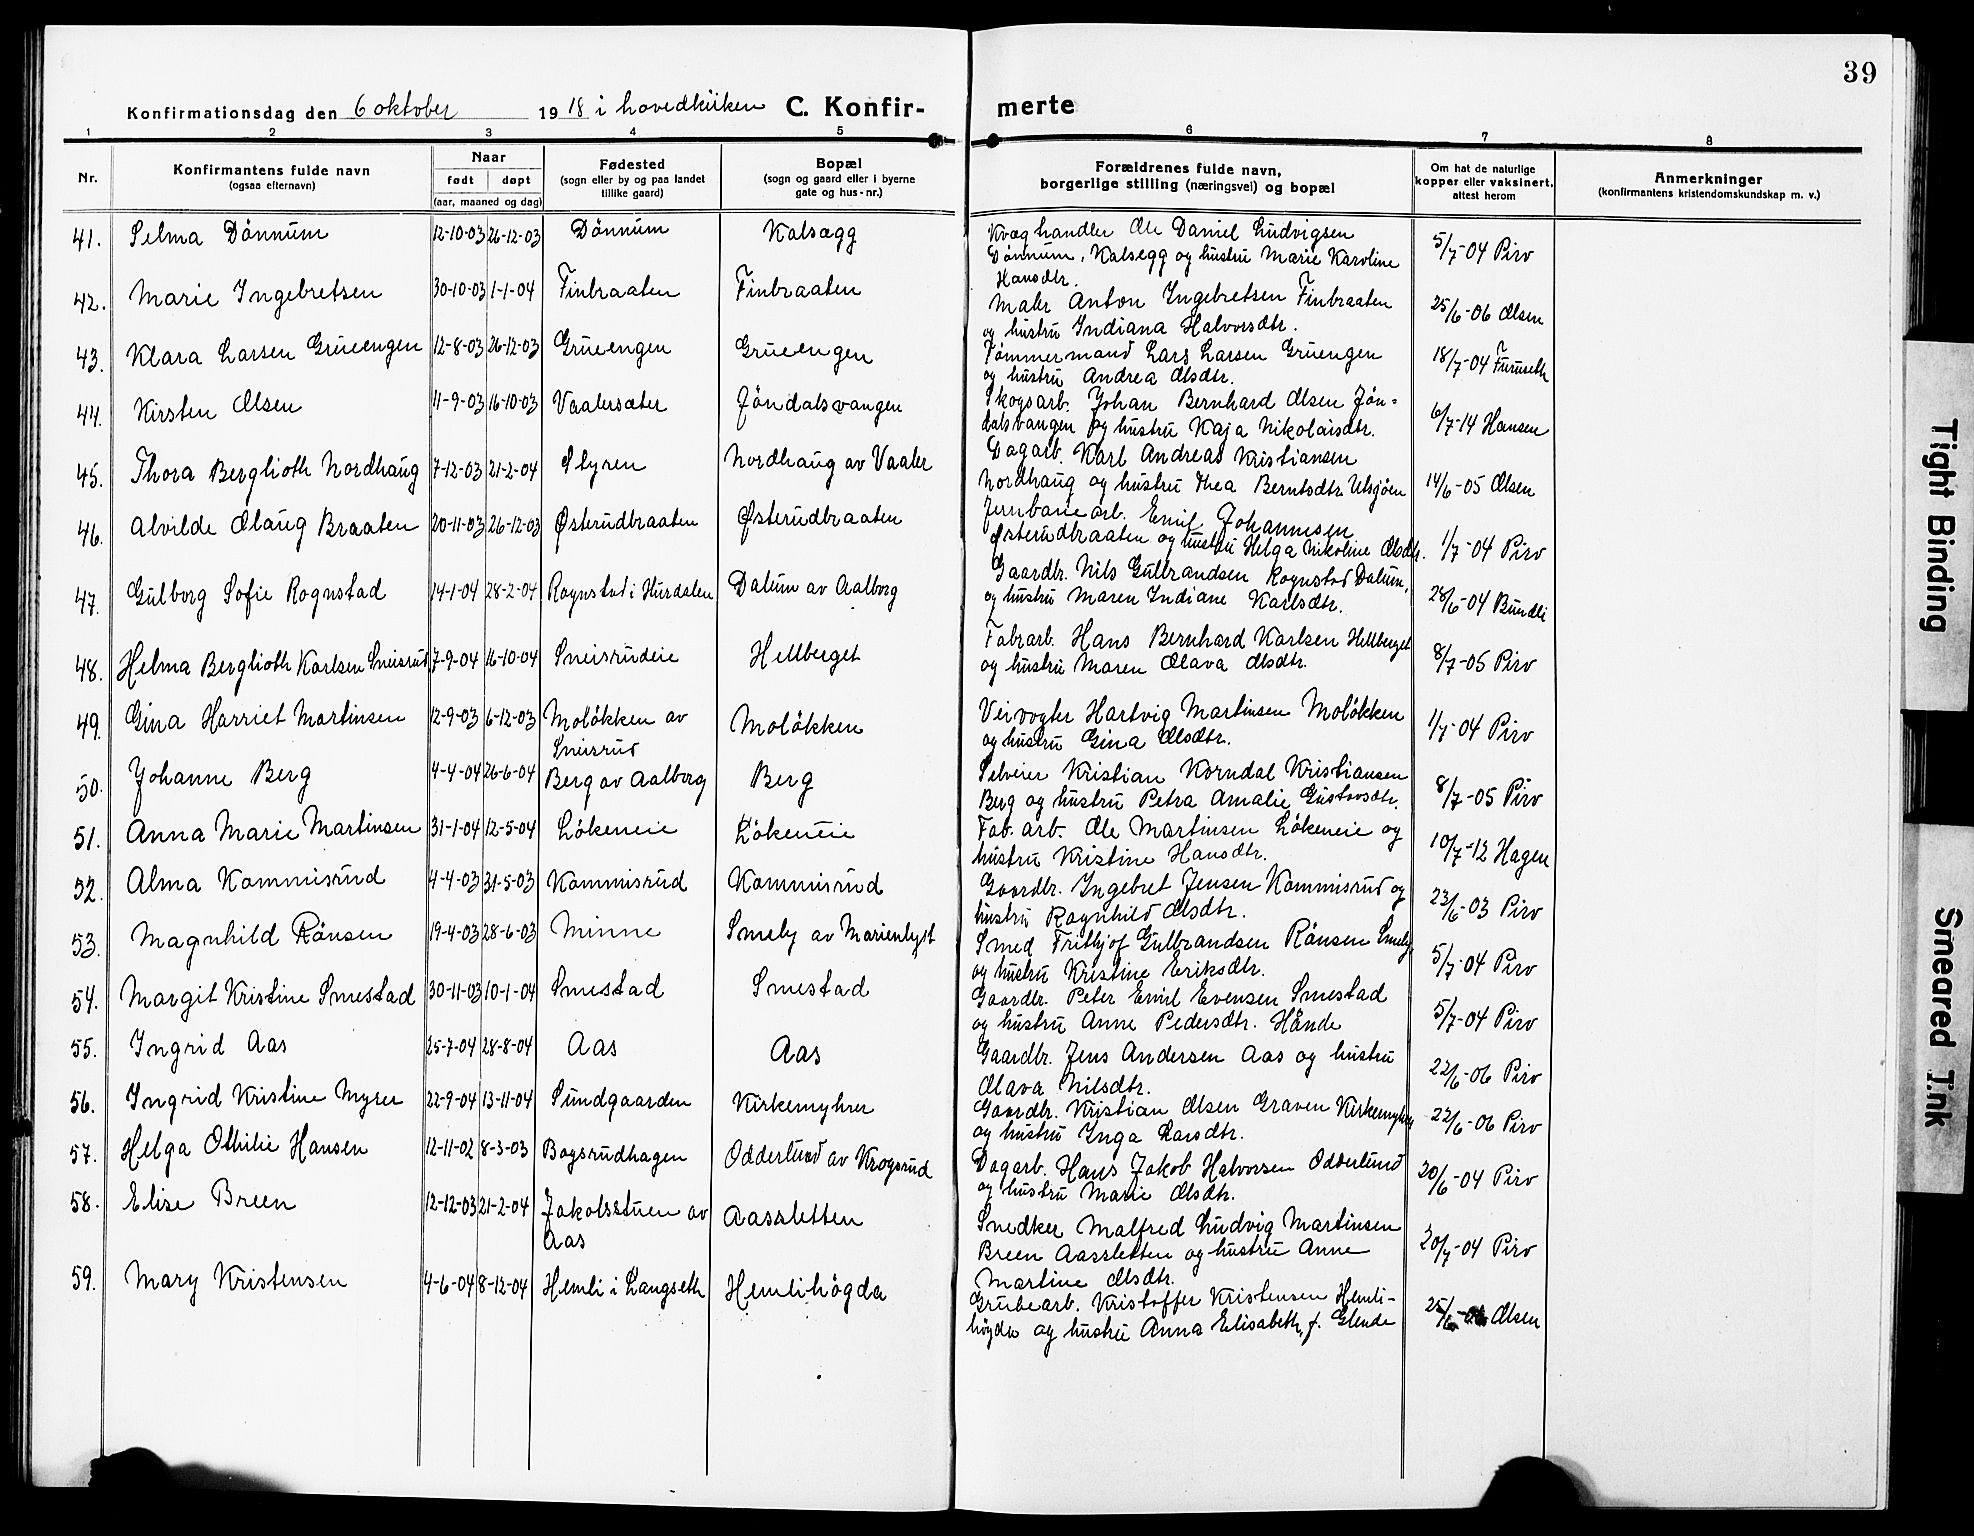 39
Konfirmationsdag den 6 oktober 1918 i hovedkirken C. Konfir-merte
1 2 3 4 5 6 7 8
Nr.
Konfirmantens fulde navn
(ogsaa efternavn)
Naar
født døpt
(aar, maaned og dag)
Fødested
(sogn eller by og paa landet
tillike gaard)
Bopæl
(sogn og gaard eller i byerne
gate og hus-nr.)
Forældrenes fulde navn,
borgerlige stilling (næringsvei) og bopæl
Om hat de naturlige
kopper eller vaksinert,
attest herom
Anmerkninger
(konfirmantens kristendomskundskap m. v.)
41. Selma Dönnum 12-10-03 26-12-03 Dönnum Kalsægg
Kvæghandler Ole Daniel Ludvigsen
Dönnum, Kalsegg og hustru Marie Karoline
Hansdtr.
5/7-04 Piro
42. Marie Ingebretsen 30-10-03 1-1-04 Finbraaten Finbraaten
Maler Anton Ingebretsen Finbraaten
og hustru Indiana Halvorsdtr.
25/6-06 Olsen
43. Klara Larsen Grueengen 12-8-03 26-12-03 Grueengen Grueengen
Tømmermand Lars Larsen Gruengen
og hustru Andrea Olsdtr.
18/7-04 Furuseth
44. Kirsten Olsen 11-9-03 16-10-03 Vaalersæter Jöndalsvangen
Skogsarb. Johan Bernhard Olsen Jön-
dalsvangen og hustru Kaja Nikolaisdtr.
6/7-14 Hansen
45. Thora Berglioth Nordhaug 7-12-03 21-2-04 Styren Nordhaug av Vaaler
Dagarb. Karl Andreas Kristiansen
Nordhaug og hustru Thea Berntsdtr. Utsjöen
14/6-05 Olsen
46. Alvilde Olaug Braaten 20-11-03 26-12-03 Østerudbraaten Østerudbraaten
Jernbanearb. Emil Johannesen
Østerudbraaten og hustru Helga Nikoline Olsdtr.
1/7-04 Piro
47. Gulborg Sofie Rognstad 14-1-04 28-2-04 Rognstad i Hurdalen Dalum av Aalborg
Gaardbr. Nils Gulbrandsen Rognstad Dalum,
og hustru Maren Indiane Karlsdtr.
28/6-04 Bundli
48. Helma Berglioth Karlsen Sneisrud 7-9-04 16-10-04 Sneisrudeie Hellberget
Fabrarb. Hans Bernhard Karlsen Hellberget
og hustru Maren Olava Olsdtr.
8/7-05 Piro
49. Gina Harriet Martinsen 12-9-03 6-12-03 Molökken av
Sneisrud
Molökken
Veivogter Hartvig Martinsen Molökken
og hustru Gina Olsdtr.
1/7-04 Piro
50. Johanne Berg 4-4-04 26-6-04 Berg av Aalborg Berg
Selveier Kristian Korndal Kristiansen
Berg og hustru Petra Amalie Gustavsdtr.
8/7-05 Piro
51. Anna Marie Martinsen 31-1-04 12-5-04 Lökeneie Lökeneie
Fab. arb. Ole Martinsen Lökeneie og
hustru Kristine Hansdtr.
10/7-12 Hagen
52. Alma Kommisrud 4-4-03 31-5-03 Kommisrud Kommisrud
Gaardbr. Ingebret Jensen Kommisrud og
hustru Ragnhild Olsdtr.
23/6-03 Piro
53. Magnhild Rånsen 19-4-03 28-6-03 Minne Smeby av Marienlyst
Smed Frithjof Gulbrandsen Rånsen Smeby
og hustru Kristine Eriksdtr.
5/7-04 Piro
54. Margit Kristine Smestad 30-11-03 10-1-04 Smestad Smestad
Gaardbr. Peter Emil Evensen Smestad
og hustru Anne Pedersdtr. Hånde
5/7-04 Piro
55. Ingrid Aas 25-7-04 28-8-04 Aas Aas
Gaardbr. Jens Andersen Aas og hustru
Olava Nilsdtr.
22/6-06 Piro
56. Ingrid Kristine Myrer 22-9-04 13-11-04 Sundgaarden Kirkemyhrer
Gaardbr. Kristian Olsen Graven Kirkemyhrer
og hustru Inga Larsdtr.
22/6-06 Piro
57. Helga Othilie Hansen 12-11-02 8-3-03 Bogsrudhagen Odderlund av Krogsrud
Dagarb. Hans Jakob Halvorsen Odderlund
og hustru Marie Olsdtr.
20/6-04 Piro
58. Elise Breen 12-12-03 21-2-04 Jakobsstuen av
Aas
Aassletten
Snedker Malfred Ludvig Martinsen
Breen Aassletten og hustru Anne
Martine Olsdtr.
20/7-04 Piro
59. Mary Kristensen 4-6-04 8-12-04 Hemli i Langseth Hemlihögda
Grubearb. Kristoffer Kristensen Hemli-
högda og hustru Anna Elisabeth, f. Glende
25/6-06 Olsen
Tight Binding
Smeared Ink